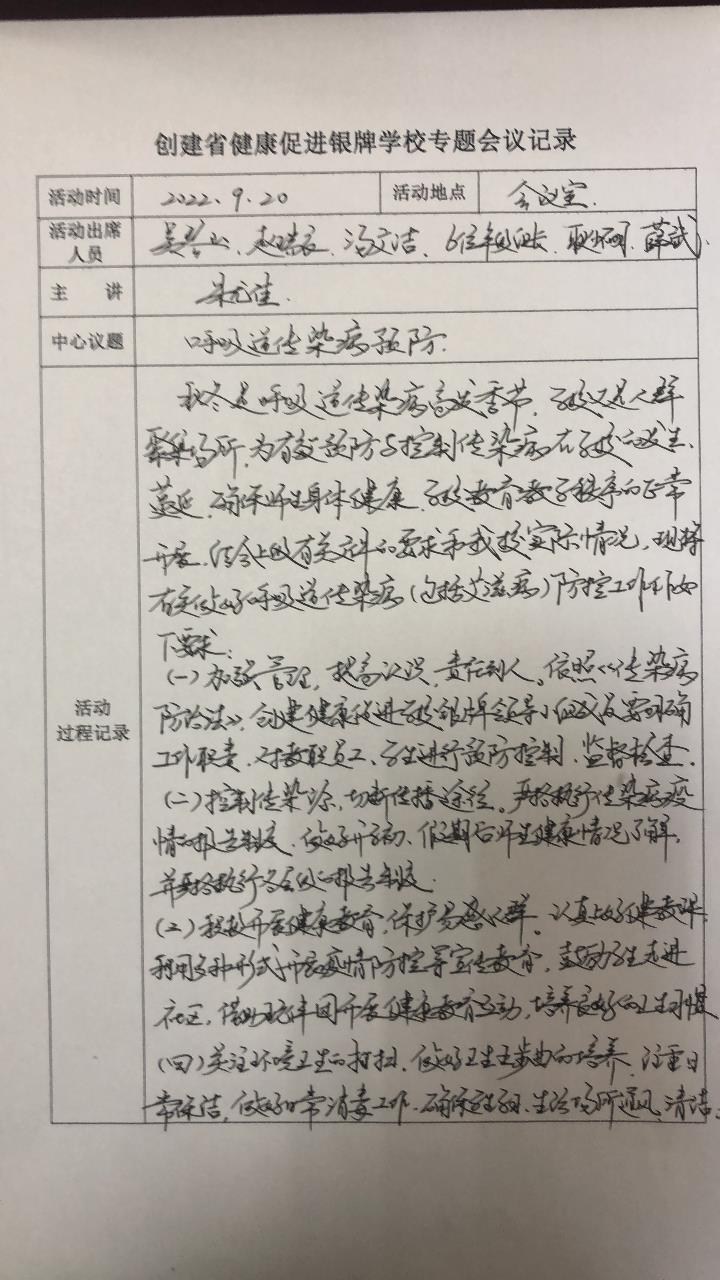 创建省健康促进银牌学校专题会议记录
活动时间 2022.9.20 活动地点 会议室.
活动出席人员 冯文洁、6位年级组长、薛武.
主讲
中心议题 呼吸道传染病预防.
活动过程记录
秋冬是呼吸道传染病高发季节,学校又是人群
聚集场所,为有效预防与控制传染病在学校的发生、
蔓延,确保师生身体健康,学校教育教学秩序的正常
开展,结合上级有关文件的要求和我校实际情况,现将
有关做好呼吸道传染病(包括艾滋病)防控工作作如
下要求:
(一)加强管理,提高认识,责任到人。依照《传染病
防治法》,创建健康促进学校银牌领导小组成员要明确
工作职责,对教职员工、学生进行预防控制、监督检查.
(二)控制传染源,切断传播途径。严格执行传染病疫
情的报告制度,做好开学初、假期后师生健康情况了解,
并严格执行的报告制度.
(三)积极开展健康教育,保护易感人群。认真上好健教课,
利用多种形式开展疫情防控等宣传教育,鼓励学生走进
社区,借助团开展健康教育活动,培养良好的卫生习惯
(四)关注环境卫生的打扫,做好卫生的培养,注重日
常保洁,做好日常消毒工作.确保生活场所通风、清洁.